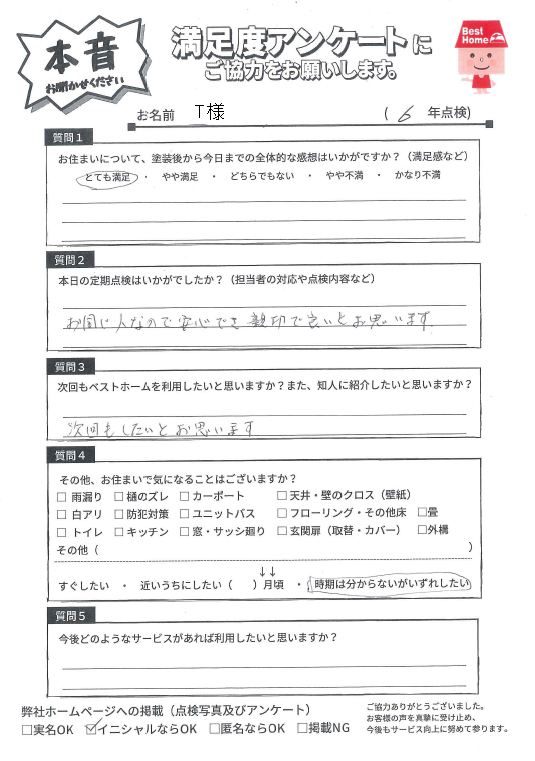 本音
お聞かせください
満足度アンケートに
ご協力をお願いします。
Best Home
お名前 T様 ( 6 年点検)
質問1
お住まいについて、塗装後から今日までの全体的な感想はいかがですか?(満足感など)
とても満足 ・ やや満足 ・ どちらでもない ・ やや不満 ・ かなり不満
質問2
本日の定期点検はいかがでしたか?(担当者の対応や点検内容など)
お同じ人なので安心でき 親切で良いとお思います。
質問3
次回もベストホームを利用したいと思いますか?また、知人に紹介したいと思いますか?
次回もしたいとお思います
質問4
その他、お住まいで気になることはございますか?
□ 雨漏り □ 樋のズレ □ カーポート □ 天井・壁のクロス(壁紙)
□ 白アリ □ 防犯対策 □ ユニットバス □ フローリング・その他床 □畳
□ トイレ □ キッチン □ 窓・サッシ廻り □ 玄関扉(取替・カバー) □外構
その他( )
↓↓
すぐしたい ・ 近いうちにしたい( )月頃 ・ 時期は分からないがいずれしたい
質問5
今後どのようなサービスがあれば利用したいと思いますか?
弊社ホームページへの掲載(点検写真及びアンケート)
□実名OK ☑イニシャルならOK □匿名ならOK □掲載NG
ご協力ありがとうございました。
お客様の声を真摯に受け止め、
今後もサービス向上に努めて参ります。